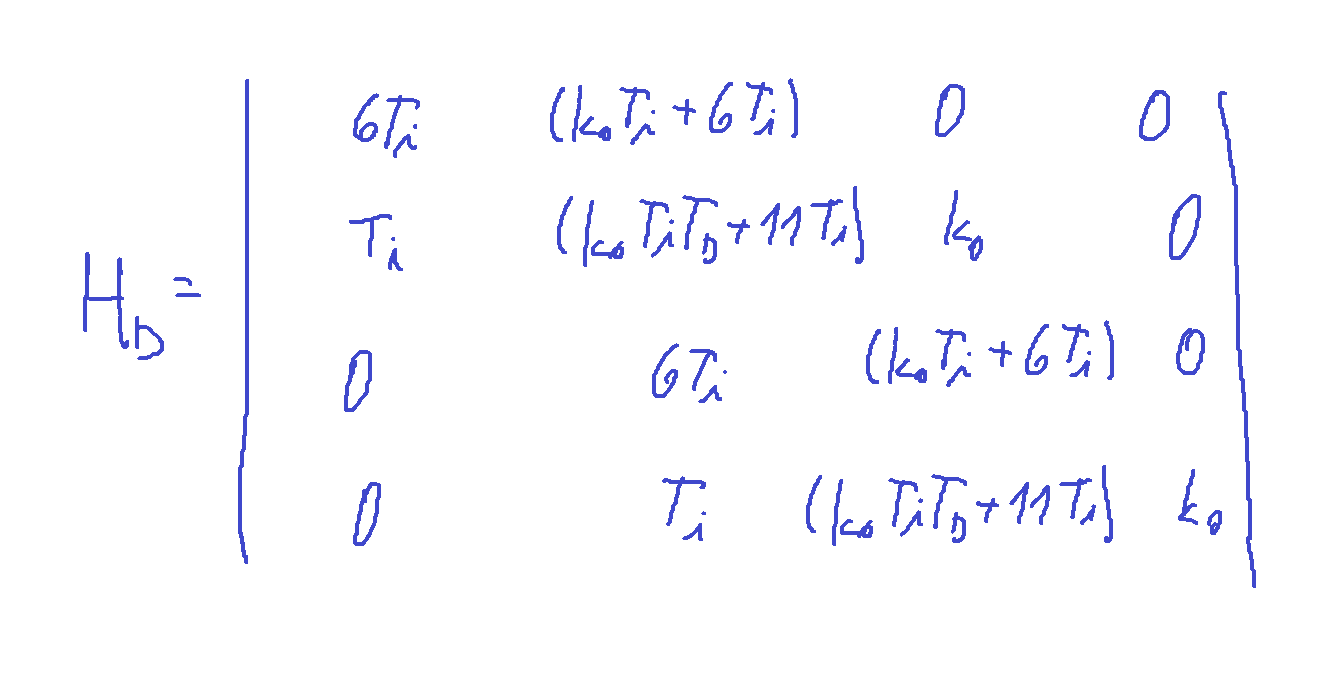 6Ti (k₀Ti + 6Ti) 0 0
Ti (k₀TiT_D + 11Ti) k₀ 0
H_D =
0 6Ti (k₀Ti + 6Ti) 0
0 Ti (k₀TiT_D + 11Ti) k₀